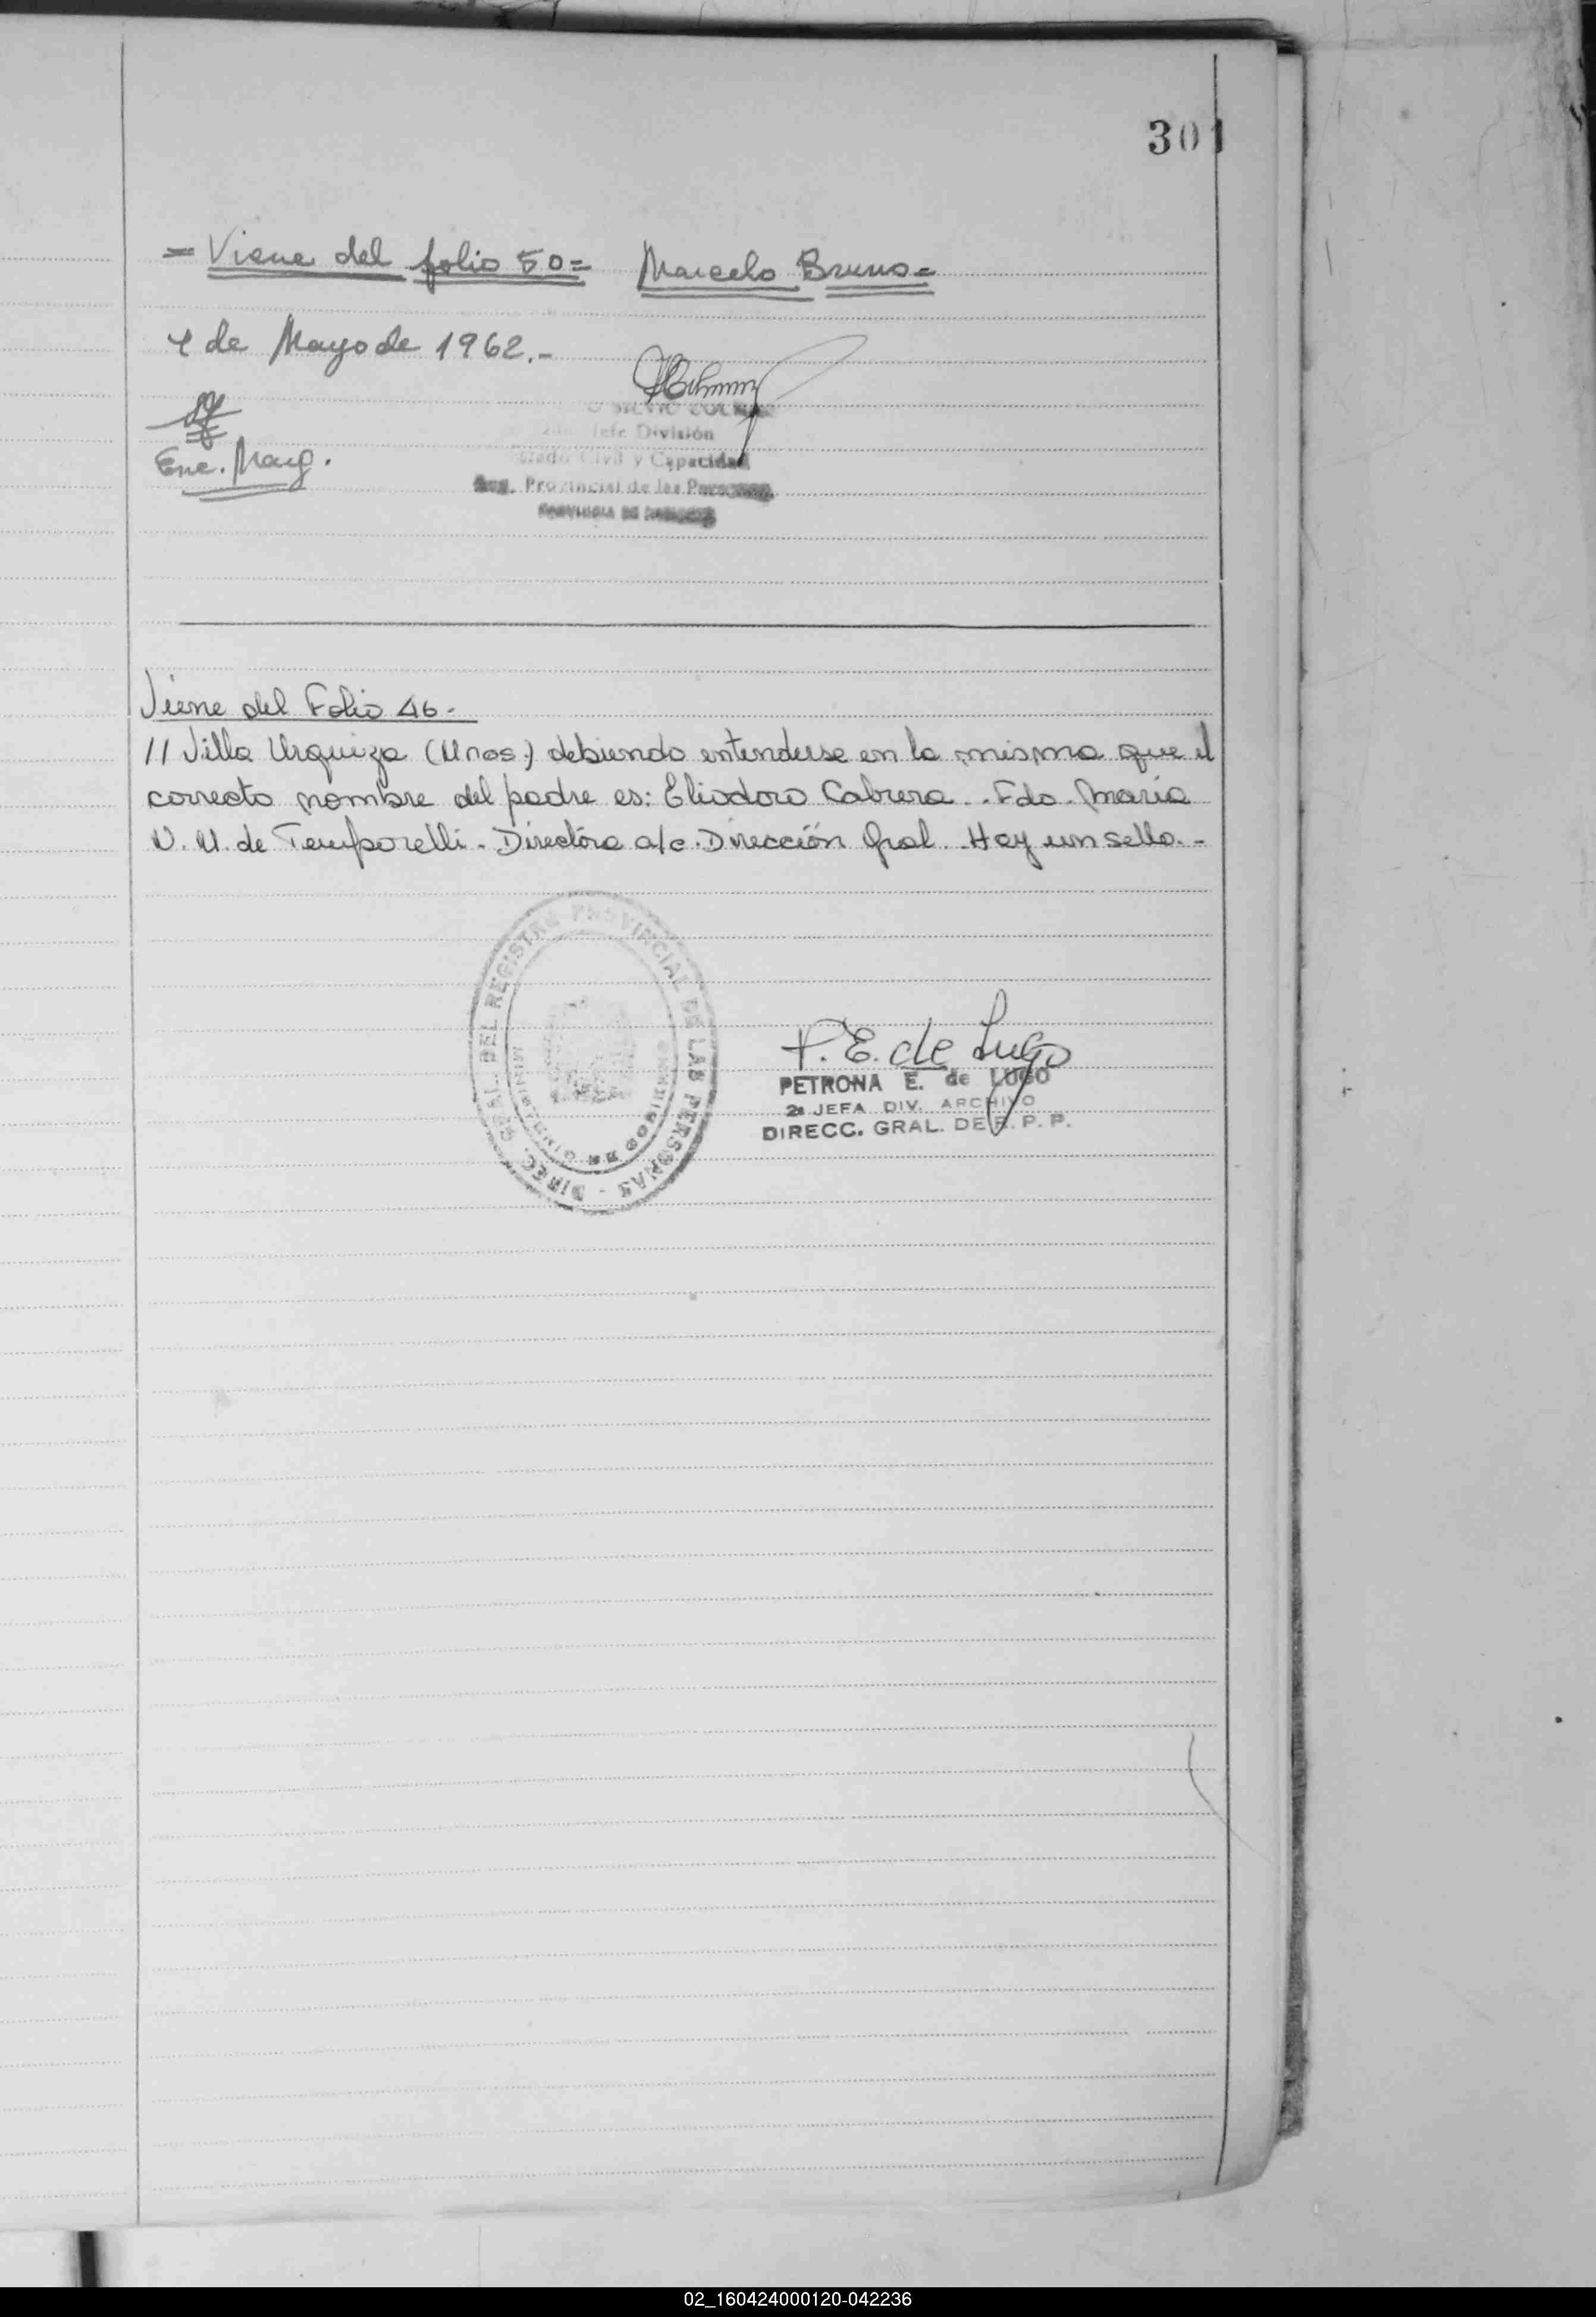 301
= Viene del folio 50= Marcelo Bruno=
4 de Mayo de 1962.-
SILVIO
Jefe División
Civil y Capacidad
Reg. Provincial de las Personas
PROVINCIA DE
Enc. Marg.
Viene del Folio 46.-
// Villa Urquiza (Mnes.) debiendo entenderse en la misma que el
correcto nombre del padre es: Eliodoro Cabrera.. Fdo. María
de Temporelli. Directora a/c. Dirección Gral. Hay un sello.-
DIREC. GRAL. DEL REGISTRO PROVINCIAL DE LAS PERSONAS -
P. E. de Lugo
PETRONA E. de LUGO
2a JEFA DIV. ARCHIVO
DIRECC. GRAL. DE R. P. P.
02_160424000120-042236